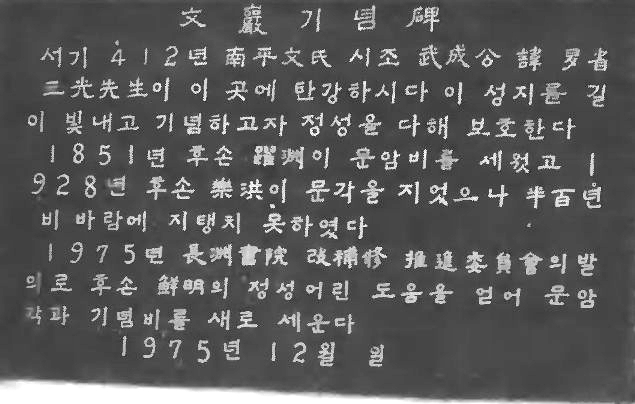 文巖기념碑
서기 412년 南平文氏 시조 武成公 諱 多省
三光先生이 이 곳에 탄강하시다 이 성지를 길
이 빛내고 기념하고자 정성을 다해 보호한다
1851년 후손 躍洲이 문암비를 세웠고 1
928년 후손 樂洪이 문각을 지었으나 半百년
비 바람에 지탱치 못하였다
1975년 長淵書院 改補修 推進委員會의 발
의로 후손 鮮明의 정성어린 도움을 얻어 문암
각과 기념비를 새로 세운다
1975년 12월 일